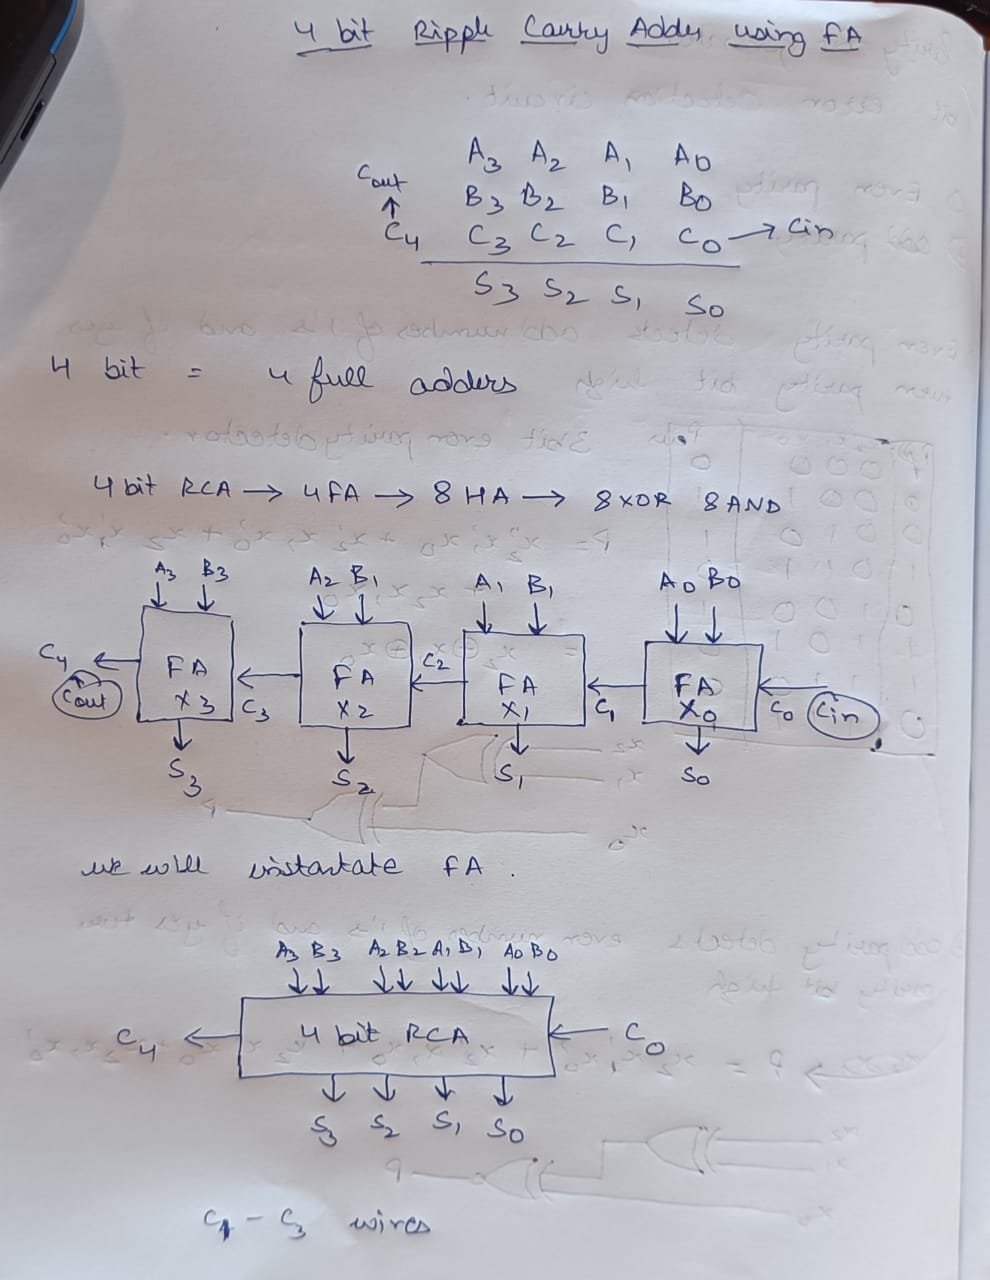 4 bit Ripple Carry Adder using FA
A3 A2 A1 A0
Cout
B3 B2 B1 B0
↑
C4 C3 C2 C1 C0 → Cin
S3 S2 S1 S0
4 bit = 4 full adders
4 bit RCA → 4FA → 8 HA → 8 XOR 8 AND
A3 B3 A2 B1 A1 B1 A0 B0
C4 FA FA C2 FA FA
Cout X3 C3 X2 X1 C1 X0 C0 Cin
S3 S2 S1 S0
we will instantate FA .
A3 B3 A2 B2 A1 B1 A0 B0
C4 ← 4 bit RCA ← C0
S3 S2 S1 S0
C1 - C3 wires